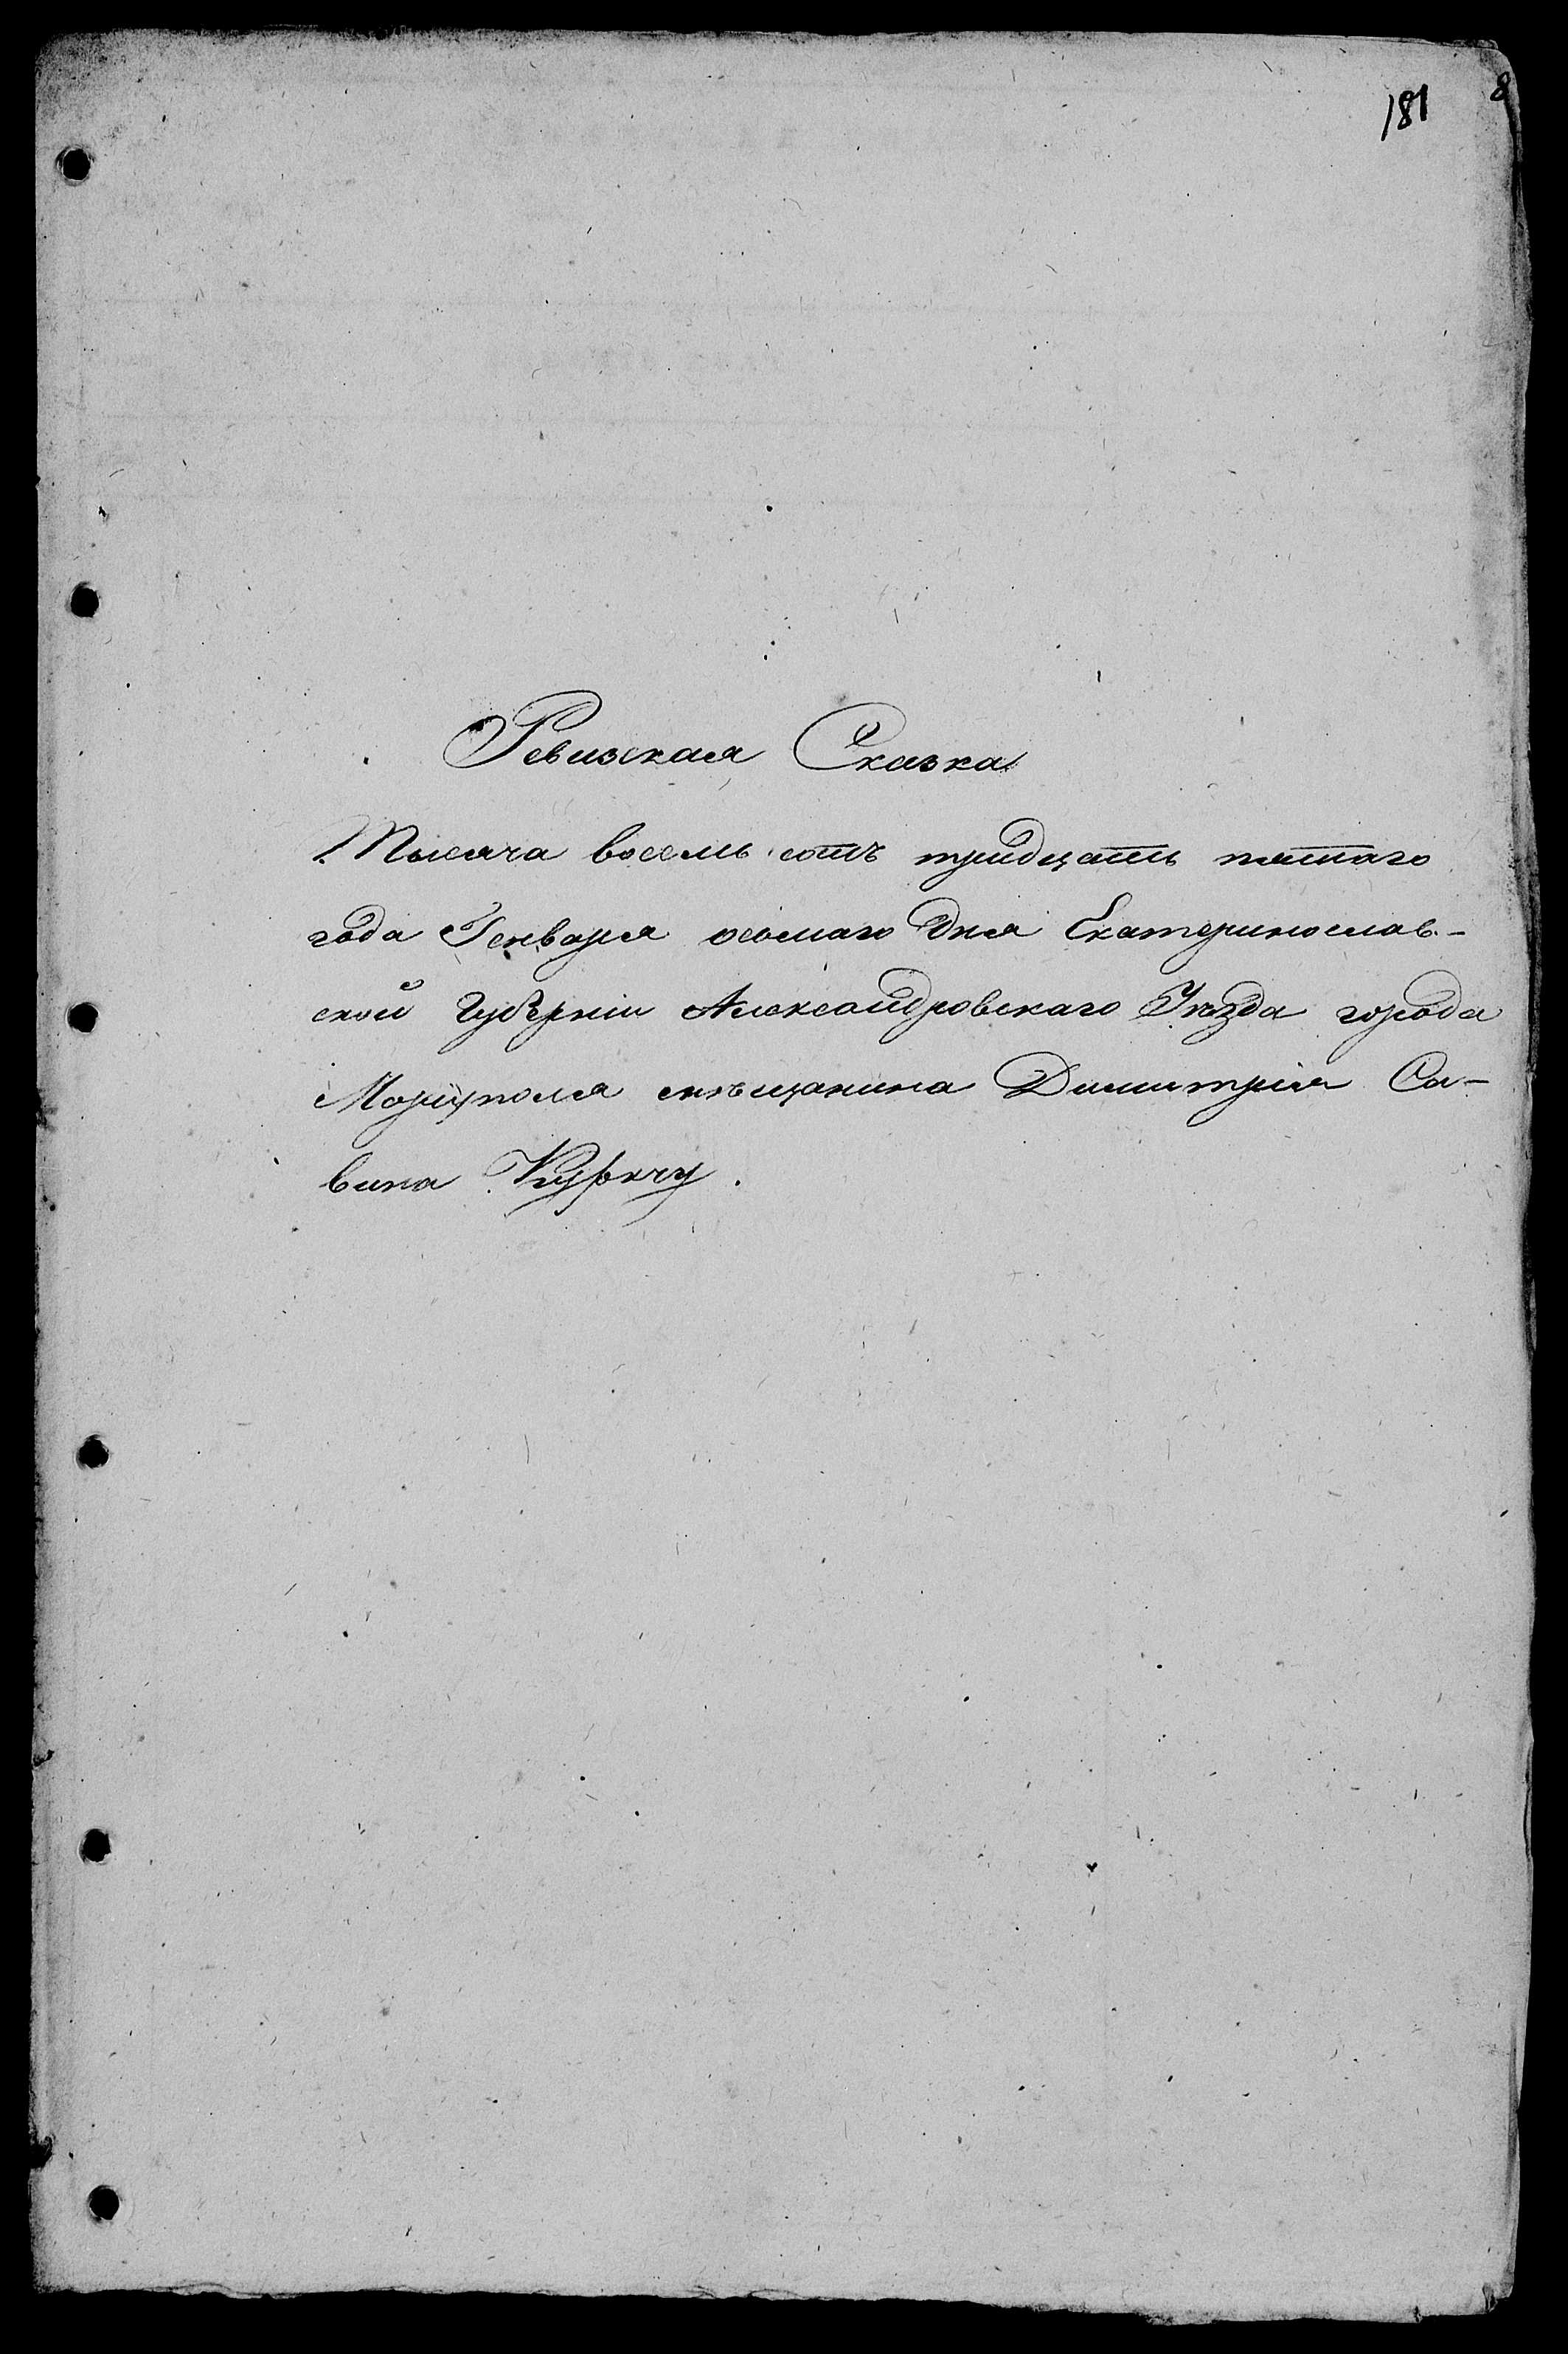 181
8
Ревизская Сказка
Тысяча восемь сотъ тридцать пятаго
года Генваря осьмаго дня Екатеринослав-
ской Губерніи Александровскаго Уѣзда города
Маріуполя мѣщанина Димитрія Са-
вина Куркчу.